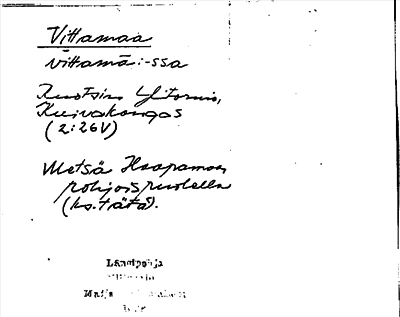 Vittamaa
vittamā:-ssa
Ruotsin Ylitornio,
Kuivakangas
(2:26V)
Metsä Haapamaan
pohjoispuolella
(ks. tätä).
Länsipohja
Maija